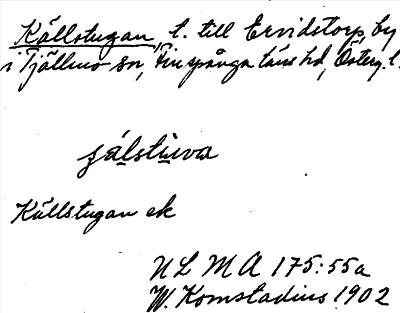 Källstugan, t. till Ervidstorp, by
i Tjällmo sn, Finspånga läns hd, Österg. l.
sálstuva
Källstugan ek
NLMA 175:55a
W. Komstadius 1902